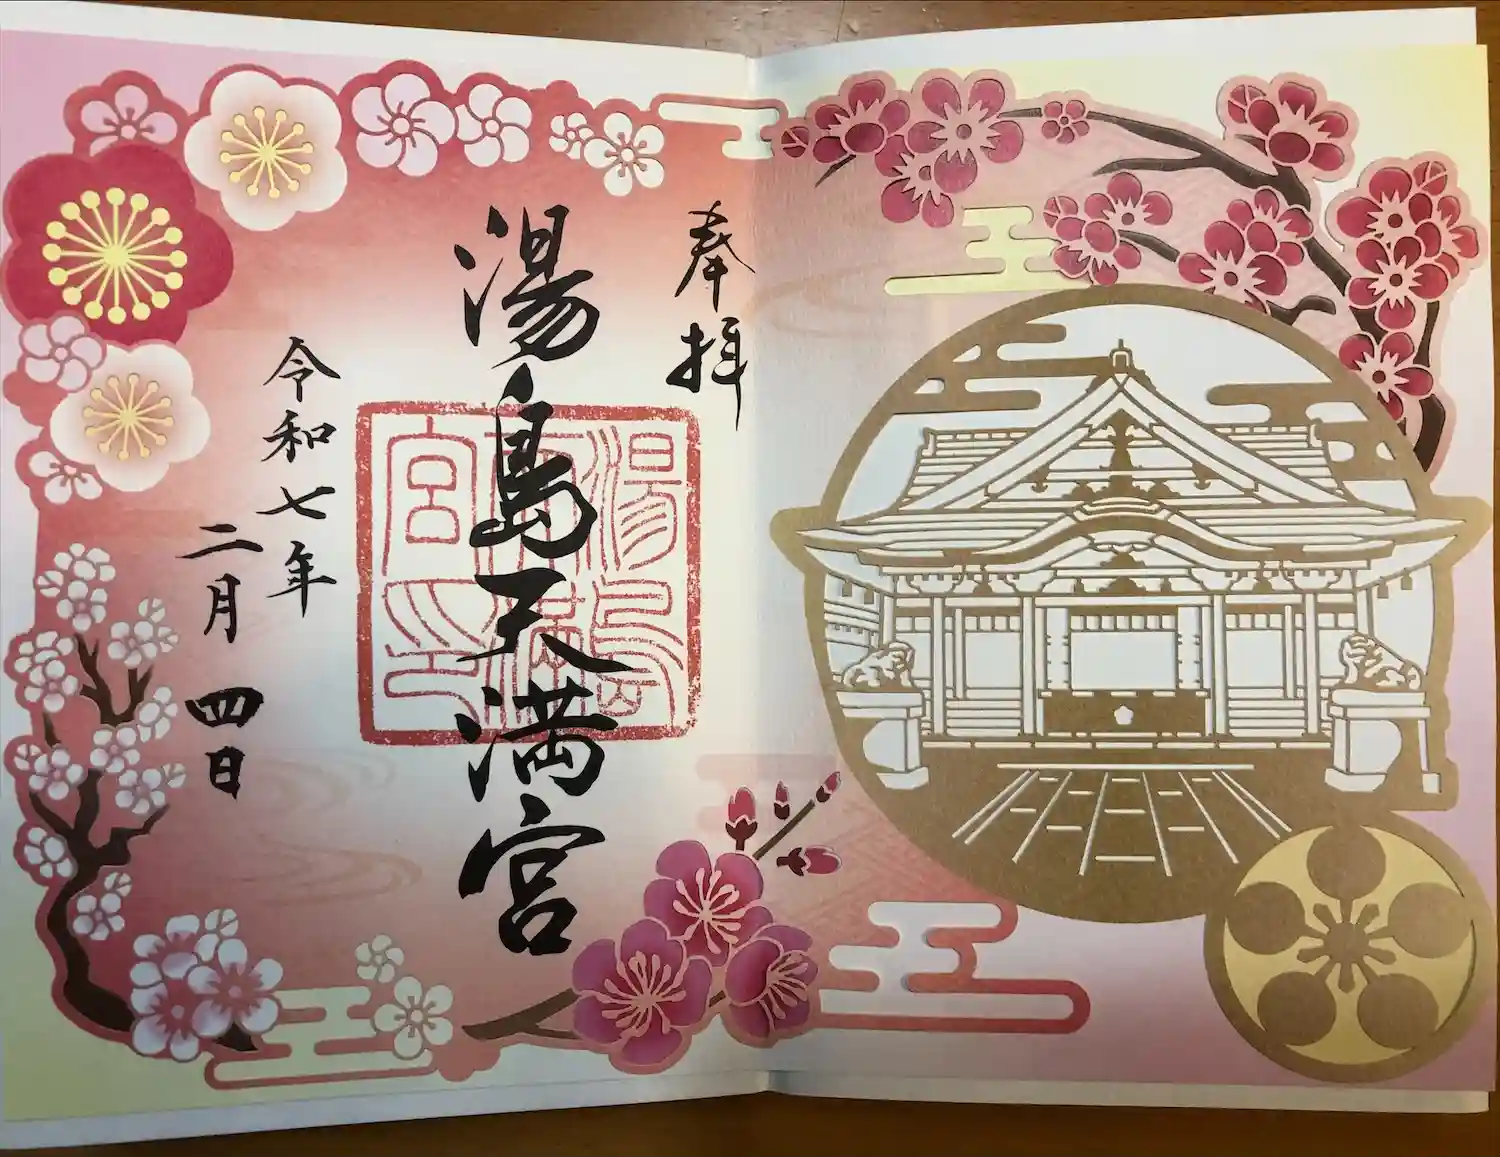 奉拝
湯島天満宮
湯島天満宮印
令和七年
二月四日